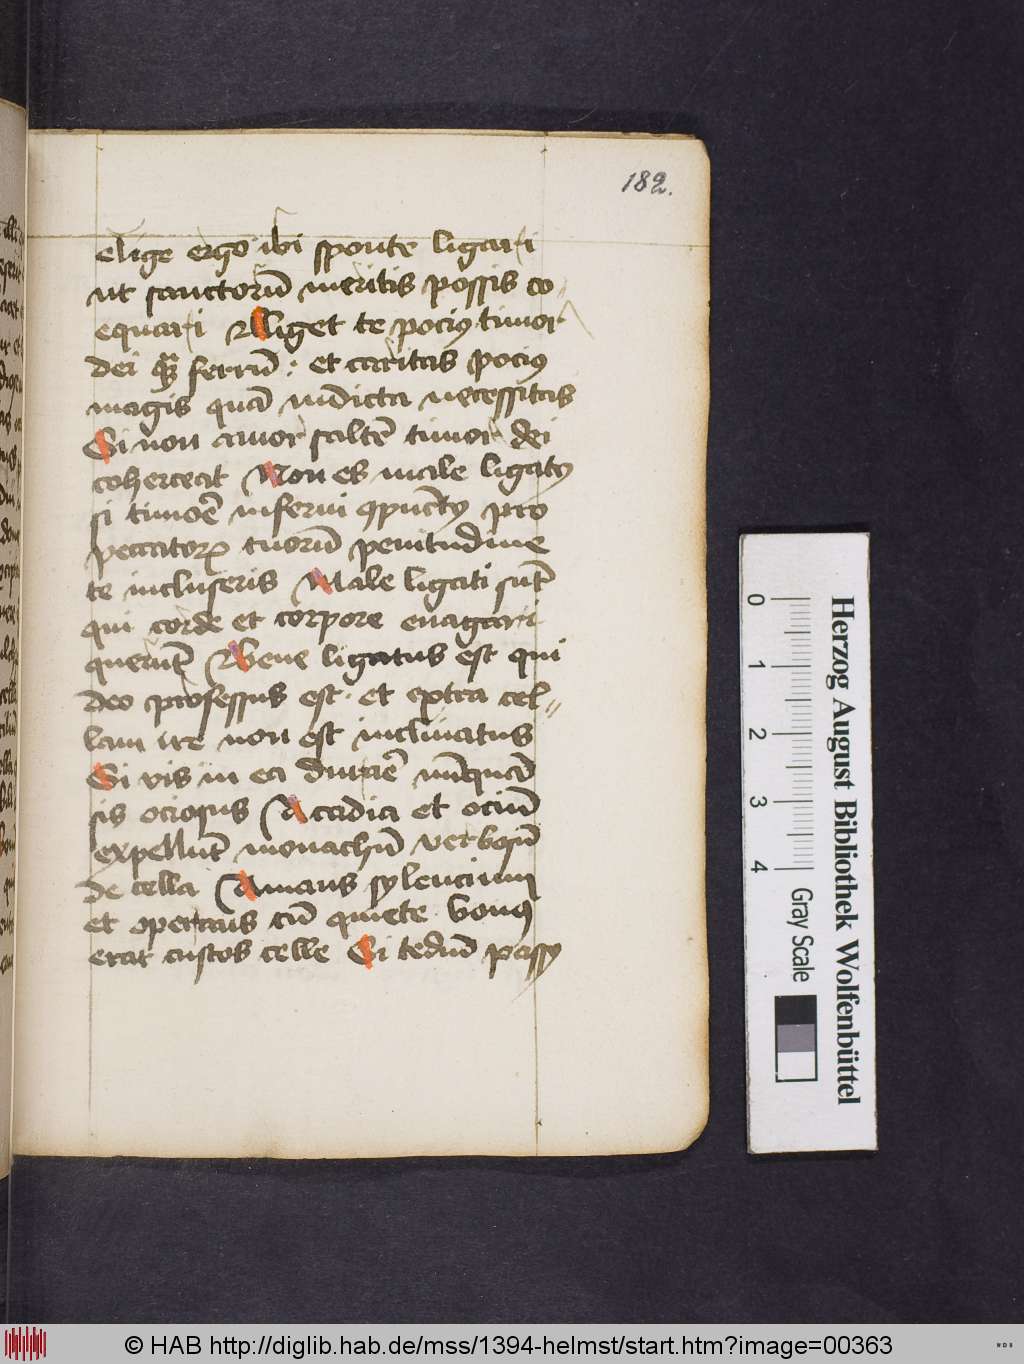 182.
elige ergo ibi sponte ligari
ut sanctorū meritis possis co-
equari Alliget te pociꝯ timor
dei qͣꝫ ferrū : et caritas pociꝯ
magis quā indicta necessitas
Si non amor saltē timor dei
coherceat Non es male ligatꝯ
si timoē inferni
pro
peccatoꝝ tuorū penitudine
te incluseris Male ligati sūt
qui corde et corpore euagari
querūt Bene ligatus est qui
deo professus est · et extra cel-
lam ire non est inclinatus
Si vis in ea duraē nūquā
sis ociosus Accidia et ociū
expellūt monachū verbosū
de cella Amans sylencium
et operans cū quiete bonꝯ
erit custos celle Si tediū
Herzog August Bibliothek Wolfenbüttel
0 1 2 3 4 Gray Scale
© HAB http://diglib.hab.de/mss/1394-helmst/start.htm?image=00363